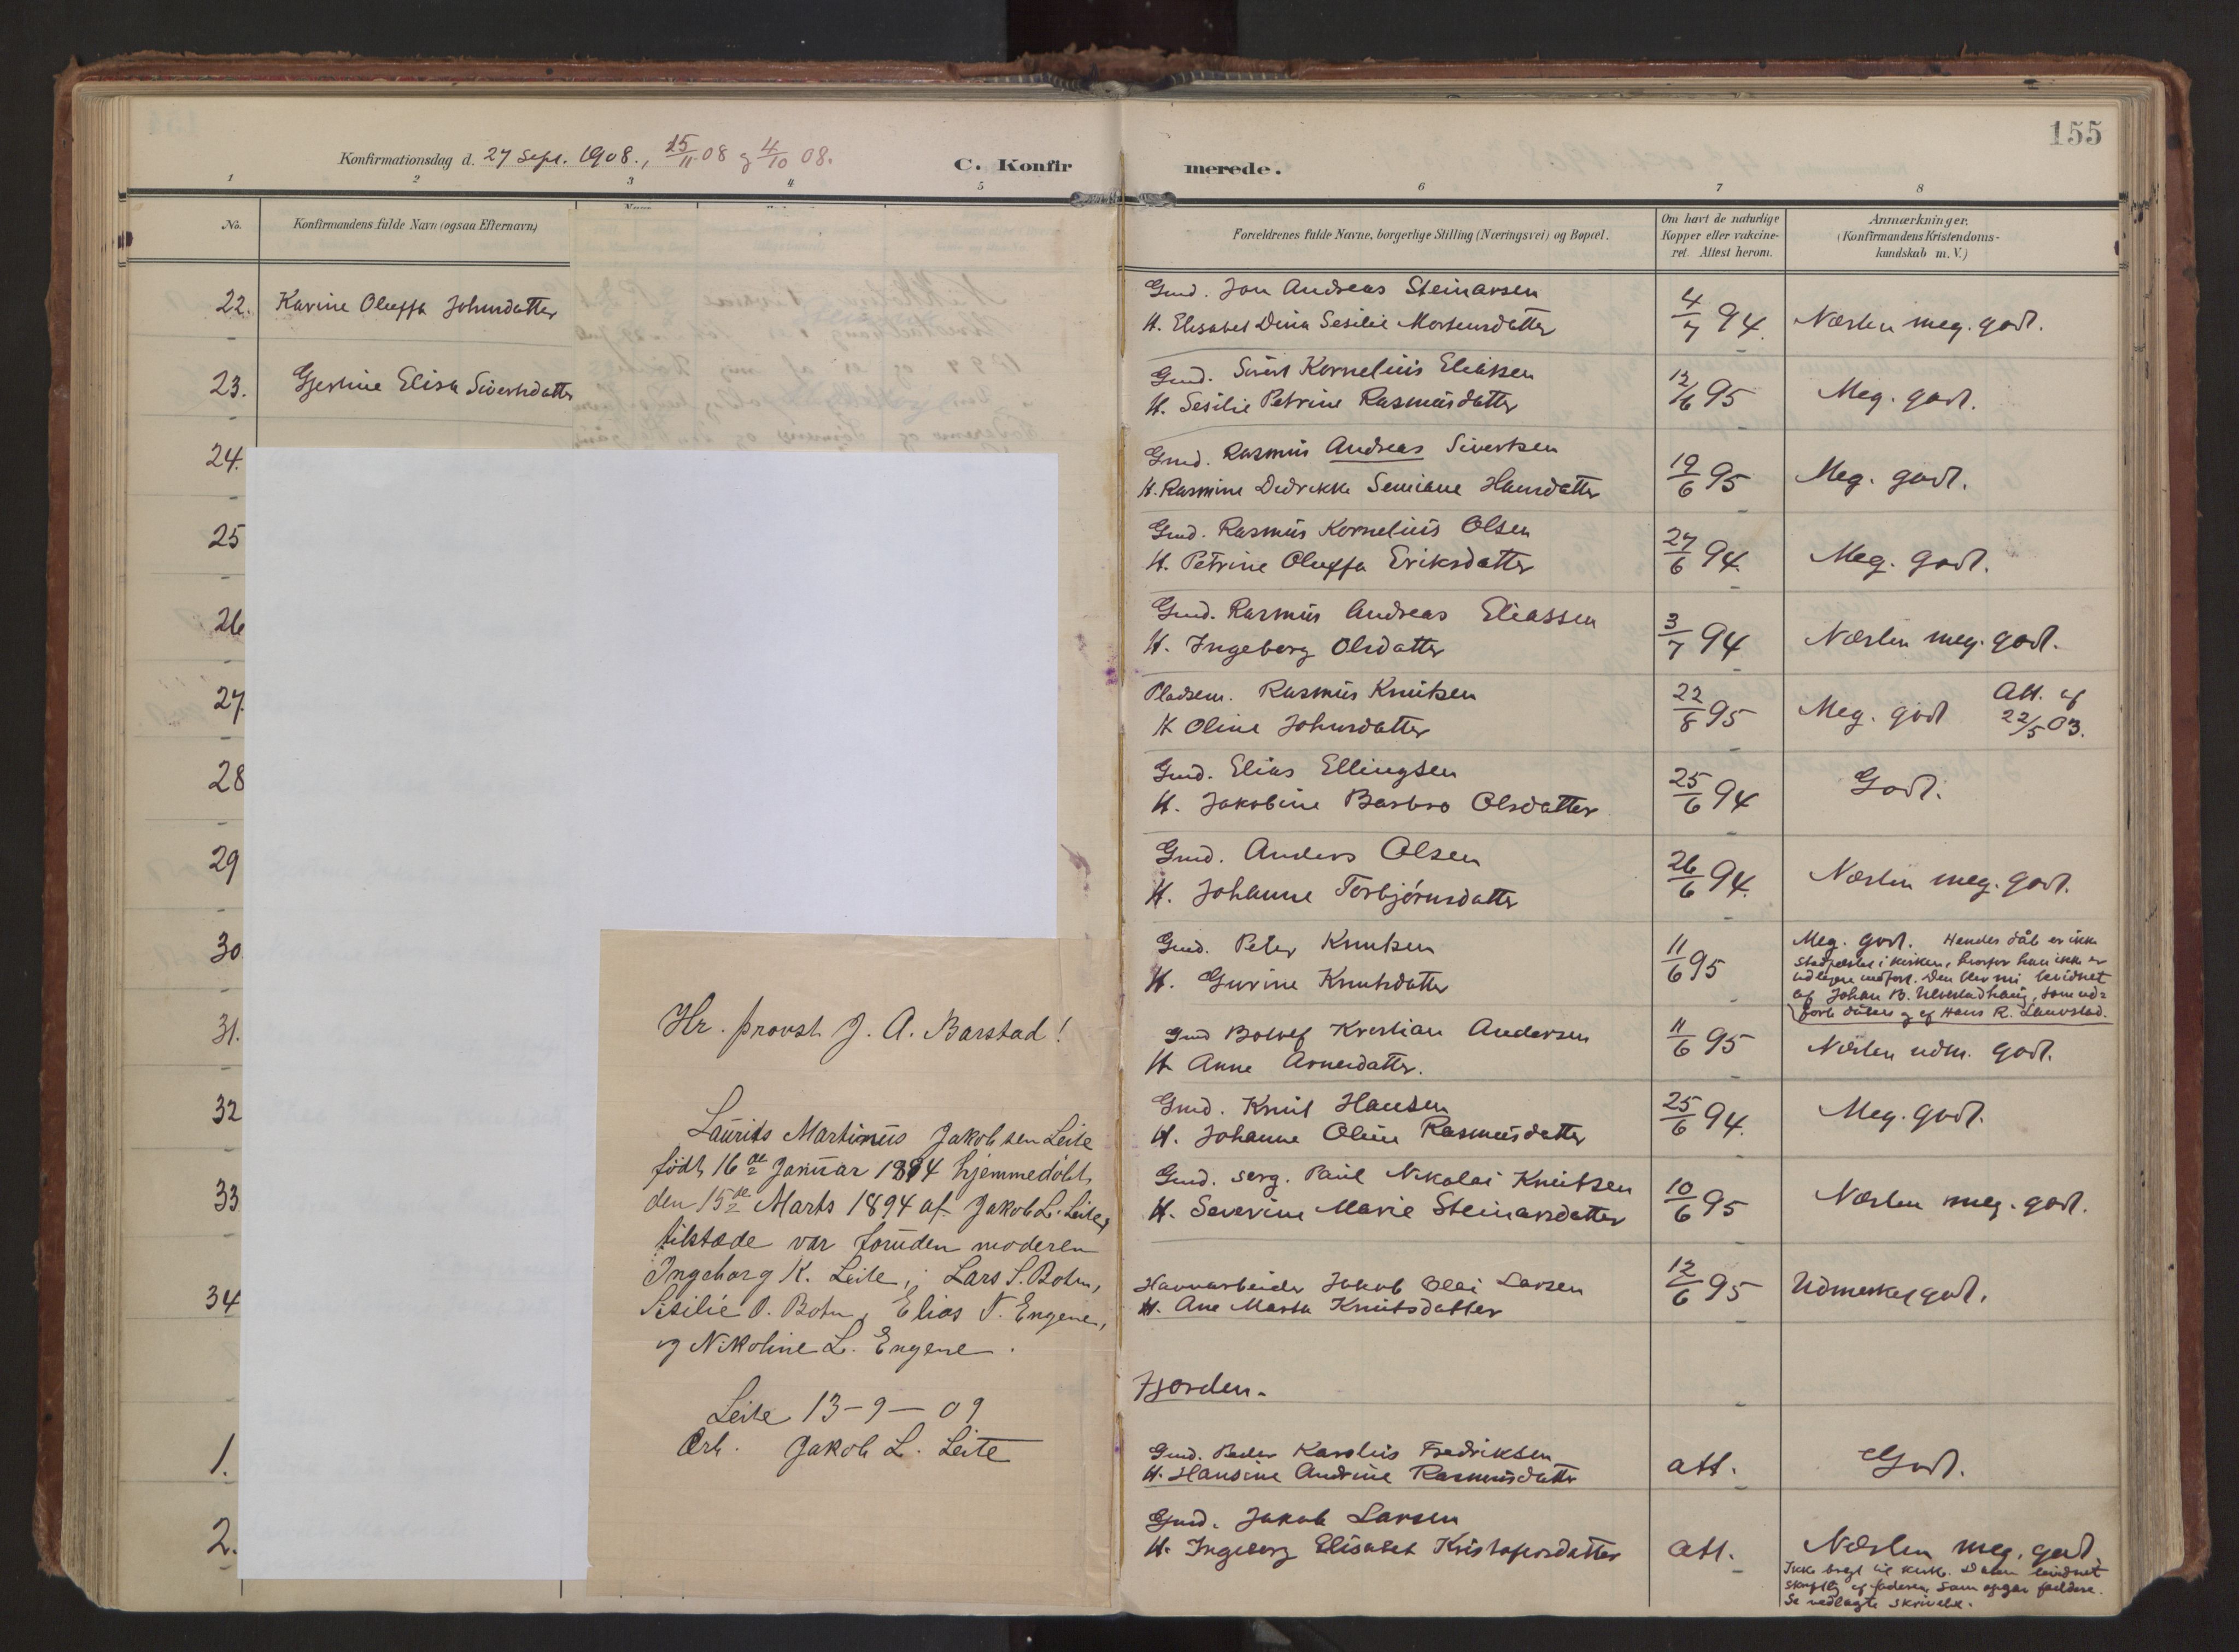 155
Konfirmationsdag d. 27 Sept. 1908., 25/11 08 og 4/10 08.
C. Konfir
merede.
1 2 3 4 5 6 7 8
No.
Konfirmandens fulde Navn (ogsaa Efternavn)
Forældrenes fulde Navne, borgerlige Stilling (Næringsvei) og Bopæl.
Om havt de naturlige
Kopper eller vakcine-
ret. Attest herom.
Anmærkninger.
(Konfirmandens Kristendoms-
kundskab m. V.)
22. Karine Oluffa Johnsdatter
Gmd. Jon Andreas Steinarsen
H. Elisabet Dina Sesilie Mortensdatter
4/7 94.
Næsten meg. godt.
23. Gjertine Elisa Sivertsdatter
Gmd. Sivert Kornelius Eliassen
H. Sesilie Petrine Rasmusdatter
12/6 95
Meg. godt.
24.
Gmd. Rasmus Andreas Sivertsen
H. Rasmine Dedrikke Semiane Hansdatter
19/6 95
Meg. godt.
25
Gmd. Rasmus Kornelius Olsen
H. Petrine Oluffa Eriksdatter
27/6 94.
Meg. godt.
26
Gmd. Rasmus Andreas Eliassen
H. Ingeborg Olsdatter
3/7 94
Næsten meg. godt.
27.
Pladsem. Rasmus Knutsen
H Oline Johnsdatter
22/8 95
Meg. godt
Att. af
22/5 03.
28
Gmd. Elias Ellingsen
H. Jakobine Barbro Olsdatter
25/6 94
Godt.
29
Gmd. Anders Olsen
H. Johanne Torbjørnsdatter
26/6 94.
Næsten meg. godt.
30
Gmd. Peter Knutsen
H. Gurine Knutsdatter
11/6 95
Meg. godt. Hendes dåb er ikke
stadfæstet i kirken, hvorfor hun ikke er
indført. Den blev mi bevidnet
af Johan B. som ud=
førte dåben og af Hans R.
31.
Gmd Botolf Kristian Andersen
H Anne Arnesdatter.
11/6 95
Næsten udm. godt.
32
Gmd. Knut Hansen
H. Johanne Oline Rasmusdatter
25/6 94.
Meg. godt.
33
Gmd. serg. Paul Nikolai Knutsen
H. Severine Marie Steinarsdatter
10/6 95
Næsten meg. godt.
34
Havnarbeider Jakob Olai Larsen
H. Ane Marta Knutsdatter
12/6 95
Udmerket godt.
Fjorden.
1.
Gmd. Peder Karolius Fredriksen
H. Hansine Andrine Rasmusdatter
att.
Godt.
2.
Gmd. Jakob Larsen
H. Ingeborg Elisabet Kristofersdatter
att.
Næsten meg. godt.
Ikke bragt til kirke. Daaben bevidnet
skriftlig af faderen som opgav faddere.
Se vedlagte skrivelse.
Hr. provst J. A. Barstad!
Laurits Martinus Jakobsen Leite
født 16de Januar 1894 hjemmedøbt,
den 15de Marts 1894 af Jakob L. Leite,
tilstæde var foruden moderen
Ingeborg K. Leite, Lars S. Botn,
Sesilie O. Botn, Elias T. Engene,
og Nikoline L. Engene.
Leite 13-9-09
Erb. Jakob L. Leite